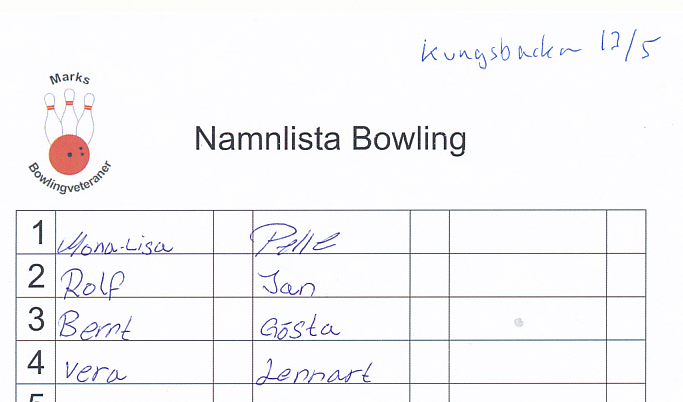 Kungsbacka 17/5
Marks
Bowlingveteraner
Namnlista Bowling
1 Mona-Lisa Pelle
2 Rolf Jan
3 Bernt Gösta
4 Vera Lennart
5